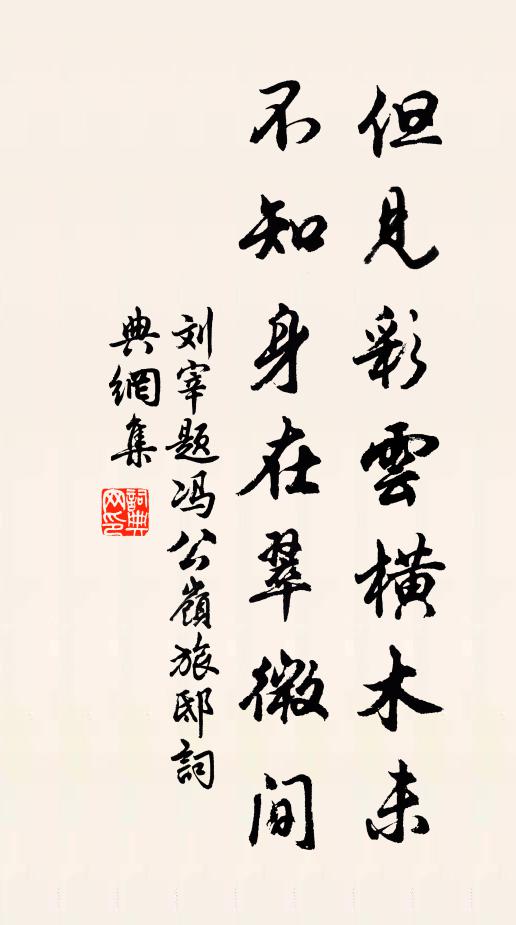 但見彩雲橫木末
不知身在翠微间
刘宰題冯公嶺旅邸詞
典網集
詞典
网印